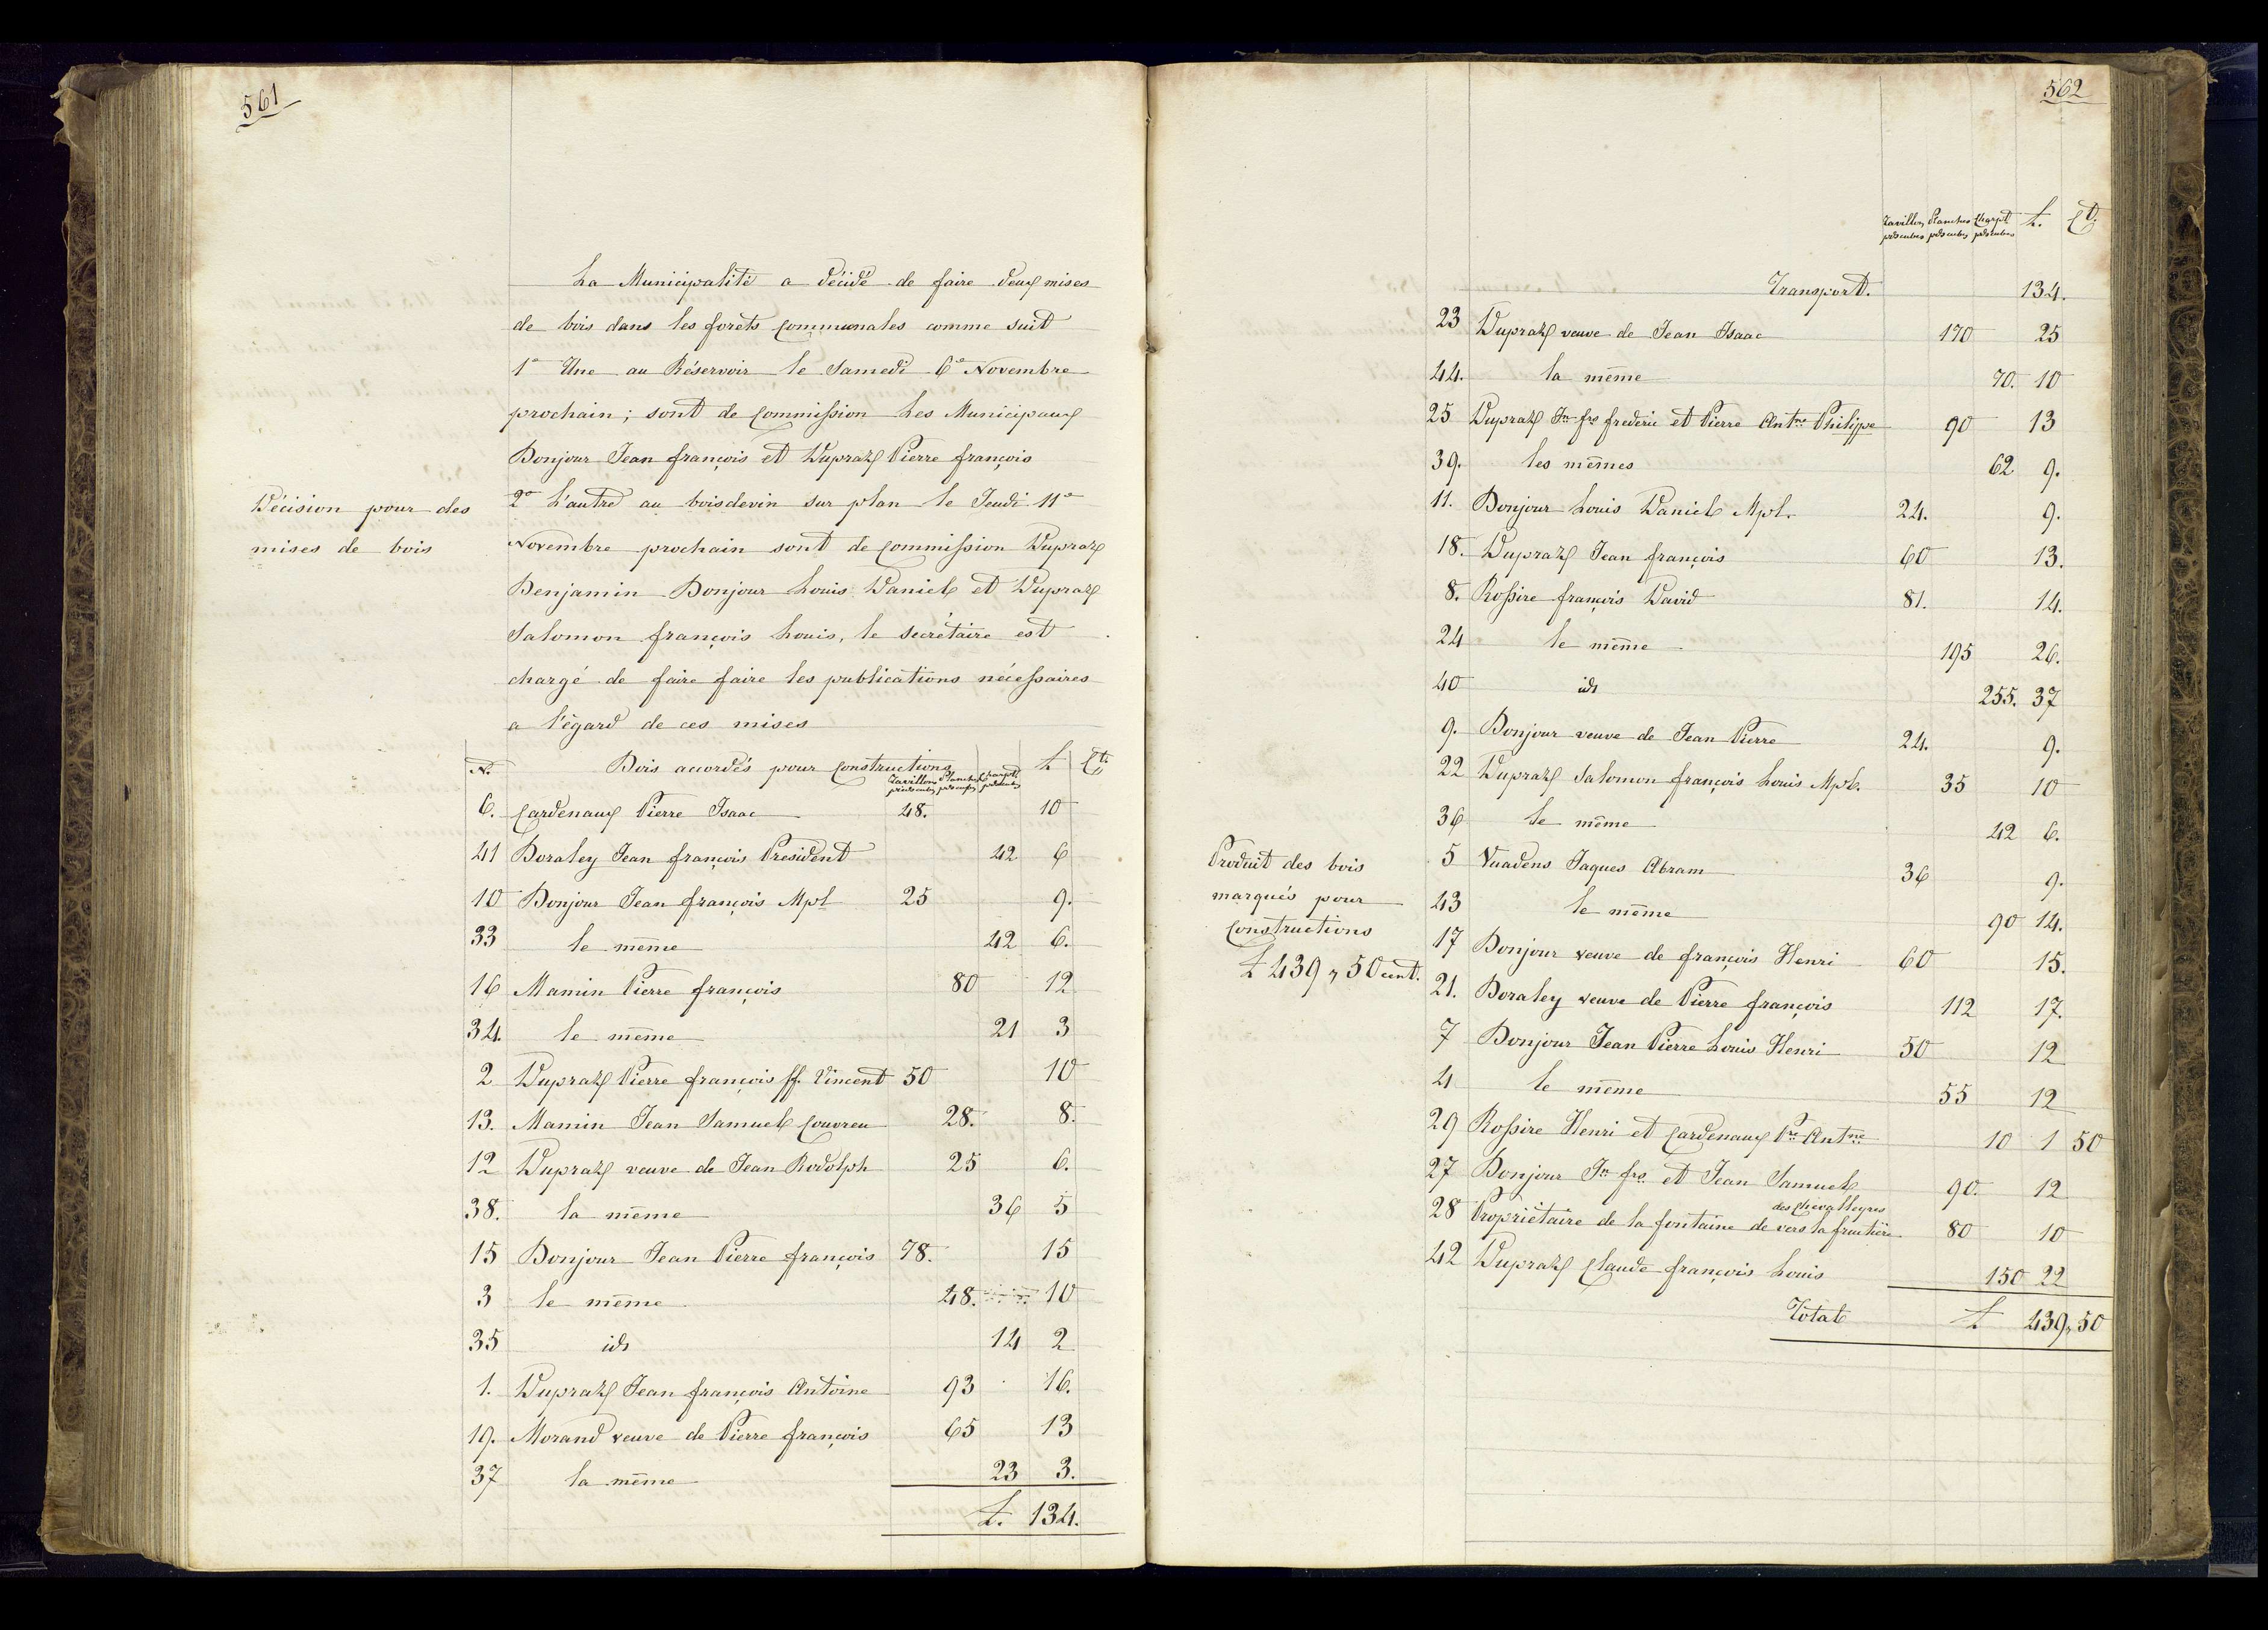 561
La Municipalité a décidé de faire deux mises
de bois dans les forets communales comme suit
1° Une au Réservoir le Samedi 6e Novembre
prochain; sont de commission Les Municipaux
Bonjour Jean françois et Dupraz Pierre françois
Décision pour des
mises de bois
2° L'autre au boisdevin sur plan le Jeudi 11e
Novembre prochain sont de commission Dupraz
Benjamin Bonjour Louis Daniel et Dupraz
Salomon françois Louis, le secrétaire est
chargé de faire faire les publications nécessaires
a l'égard de ces mises
N. Bois accordés pour constructions Tavillons pieds cubes Planches pds cubes Charpte pds cubes L Ct.
6. Cardenaux Pierre Isaac 48. 10
41 Boraley Jean françois President 42 6
10 Bonjour Jean françois Mpl 25 9.
33 le même 42 6.
16 Mamin Pierre françois 80 12
34. le même 21 3
2 Dupraz Pierre françois ff. Vincent 50 10
13. Mamin Jean Samuel Couvreu 28. 8.
12 Dupraz veuve de Jean Rodolph 25 6.
38. la même 36 5
15 Bonjour Jean Pierre françois 78. 15
3 le même 48. 10
35 id 14 2
1. Dupraz Jean françois Antoine 93 16.
19. Morand veuve de Pierre françois 65 13
37 la même 23 3.
L. 134.
562
Tavillons pds cubes Planches pds cubes Charpte pds cubes L. Ct.
Transport. 134.
23 Dupraz veuve de Jean Isaac 170 25
44. la même 70. 10
25 Dupraz Jn fro frederic et Pierre Antne Philippe 90 13
39. les mêmes 62 9.
11. Bonjour Louis Daniel Mpl. 24. 9.
18. Dupraz Jean françois 60 13.
8. Rossire françois David 81. 14.
24 le même 195 26.
40 id 255. 37
9. Bonjour veuve de Jean Pierre 24. 9.
22 Dupraz Salomon françois Louis Mpl. 35 10
36 le même 42 6.
Produit des bois
marqués pour
constructions
L 439, 50 cent.
5 Vuadens Jaques Abram 36 9.
43 le même 90 14.
17 Bonjour veuve de françois Henri 60 15.
21. Boraley veuve de Pierre françois 112 17.
7 Bonjour Jean Pierre Louis Henri 50 12
4 le même 55 12
29 Rossire Henri et Cardenaux Pre Antne 10 1 50
27 Bonjour Jn fro et Jean Samuel 90. 12
des Chevalleyres
28 Propriétaire de la fontaine de vers la fruitière 80 10
42 Dupraz Claude françois Louis 150 22
Total L 439, 50